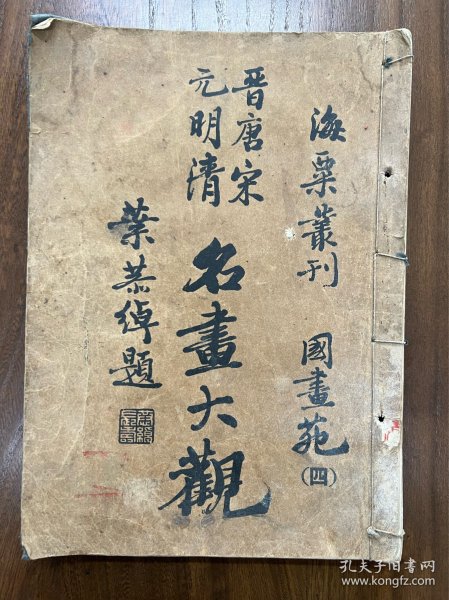 海粟叢刊 國畫苑(四)
晋唐宋
元明清
名畫大觀
葉恭綽題
孔夫子旧书网
www.kongfz.com